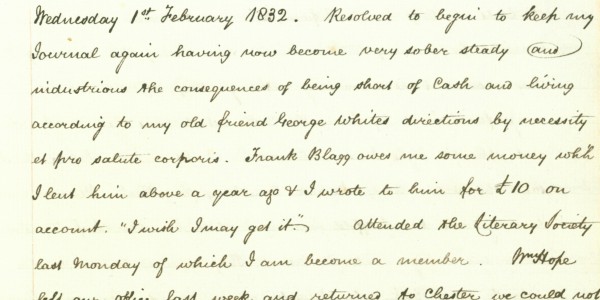 Wednesday 1st February 1832. Resolved to begin to keep my
Journal again having now become very sober steady and
industrious the consequences of being short of Cash and living
according to my old friend George Whites directions by necessity
et pro salute corporis. Frank Blagg owes me some money whh
I lent him above a year ago & I wrote to him for £10 on
account. "I wish I may get it." Attended the Literary Society
last Monday of which I am become a member. Wm Hope
left our office last week and returned to Chester we could not